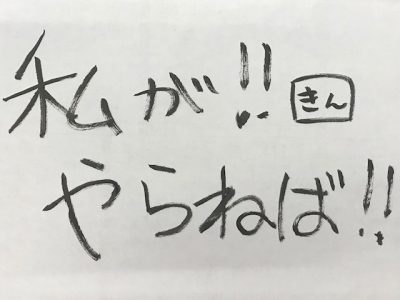 私が!! きん
やらねば!!